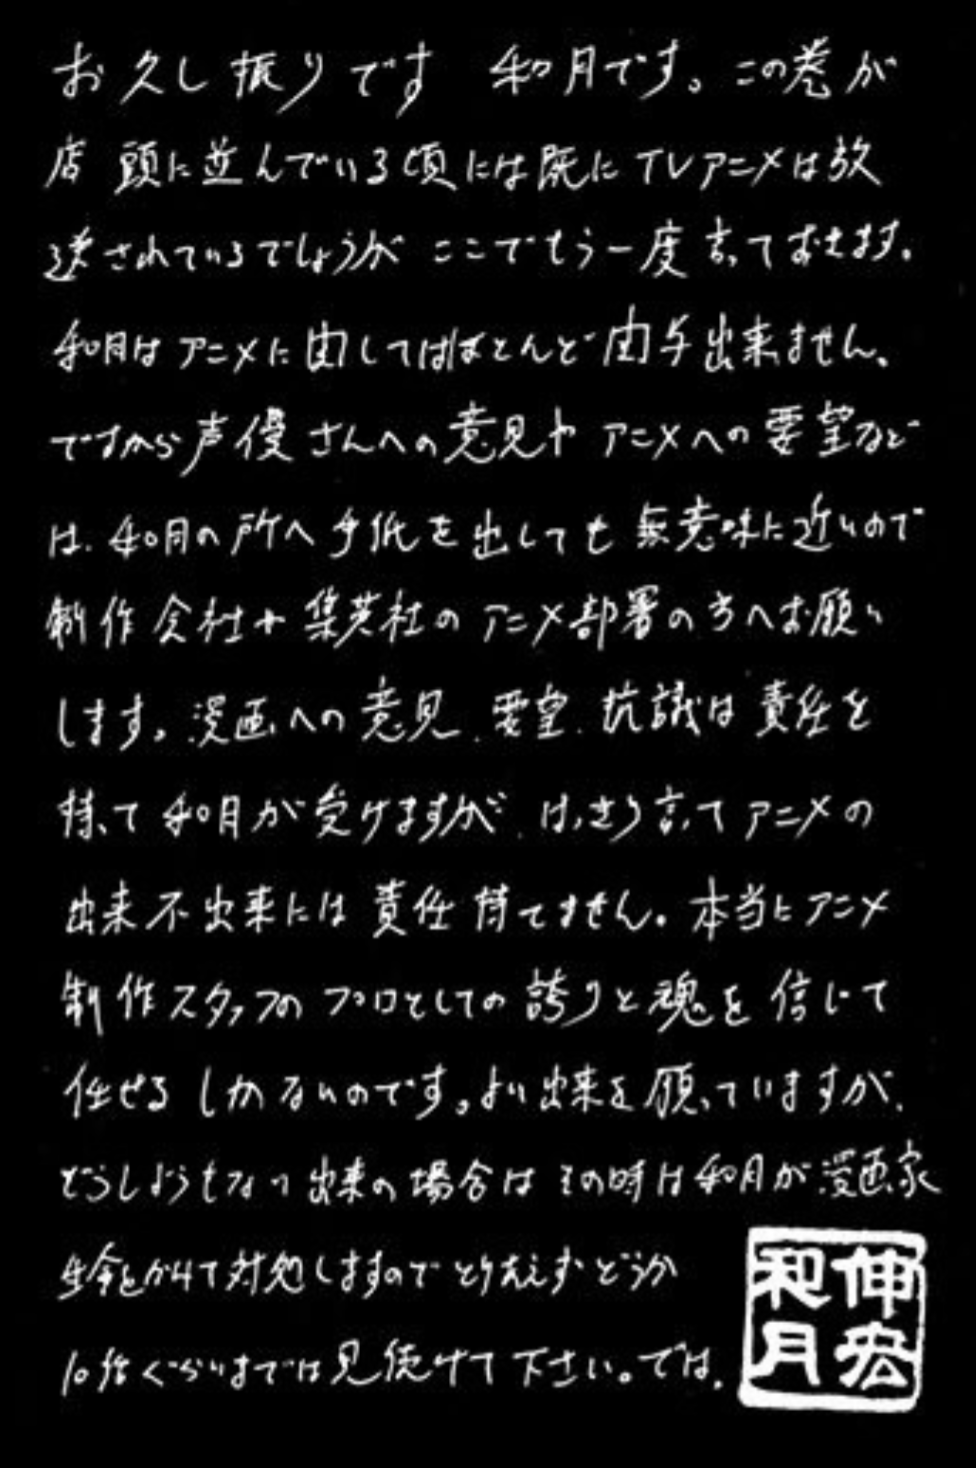 お久し振りです 和月です。この巻が
店頭に並んでいる頃には既にTVアニメは放
送されているでしょうが ここでもう一度言っておきます。
和月はアニメに関してはほとんど関与出来ません、
ですから声優さんへの意見や アニメへの要望など
は、和月の所へ手紙を出しても 無意味に近いので
制作会社や集英社のアニメ部署の方へお願い
します。漫画への意見、要望、抗議は責任を
持って和月が受けますが、はっきり言ってアニメの
出来不出来には責任持てません。本当にアニメ
制作スタッフの プロとしての誇りと魂を信じて
任せるしかないのです。よい出来を願っていますが、
どうしようもない出来の場合は その時は和月が漫画家
生命をかけて対処しますので とりあえず どうか
10話ぐらいまでは見続けて下さい。では。
伸宏
和月